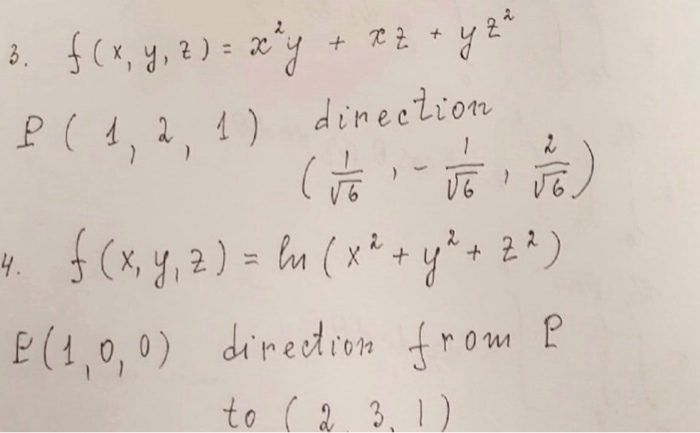 3. f(x, y, z) = x²y + xz + yz²
P(1, 2, 1) direction
(1/√6, -1/√6, 2/√6)
4. f(x, y, z) = ln(x² + y² + z²)
P(1, 0, 0) direction from P
to (2, 3, 1)